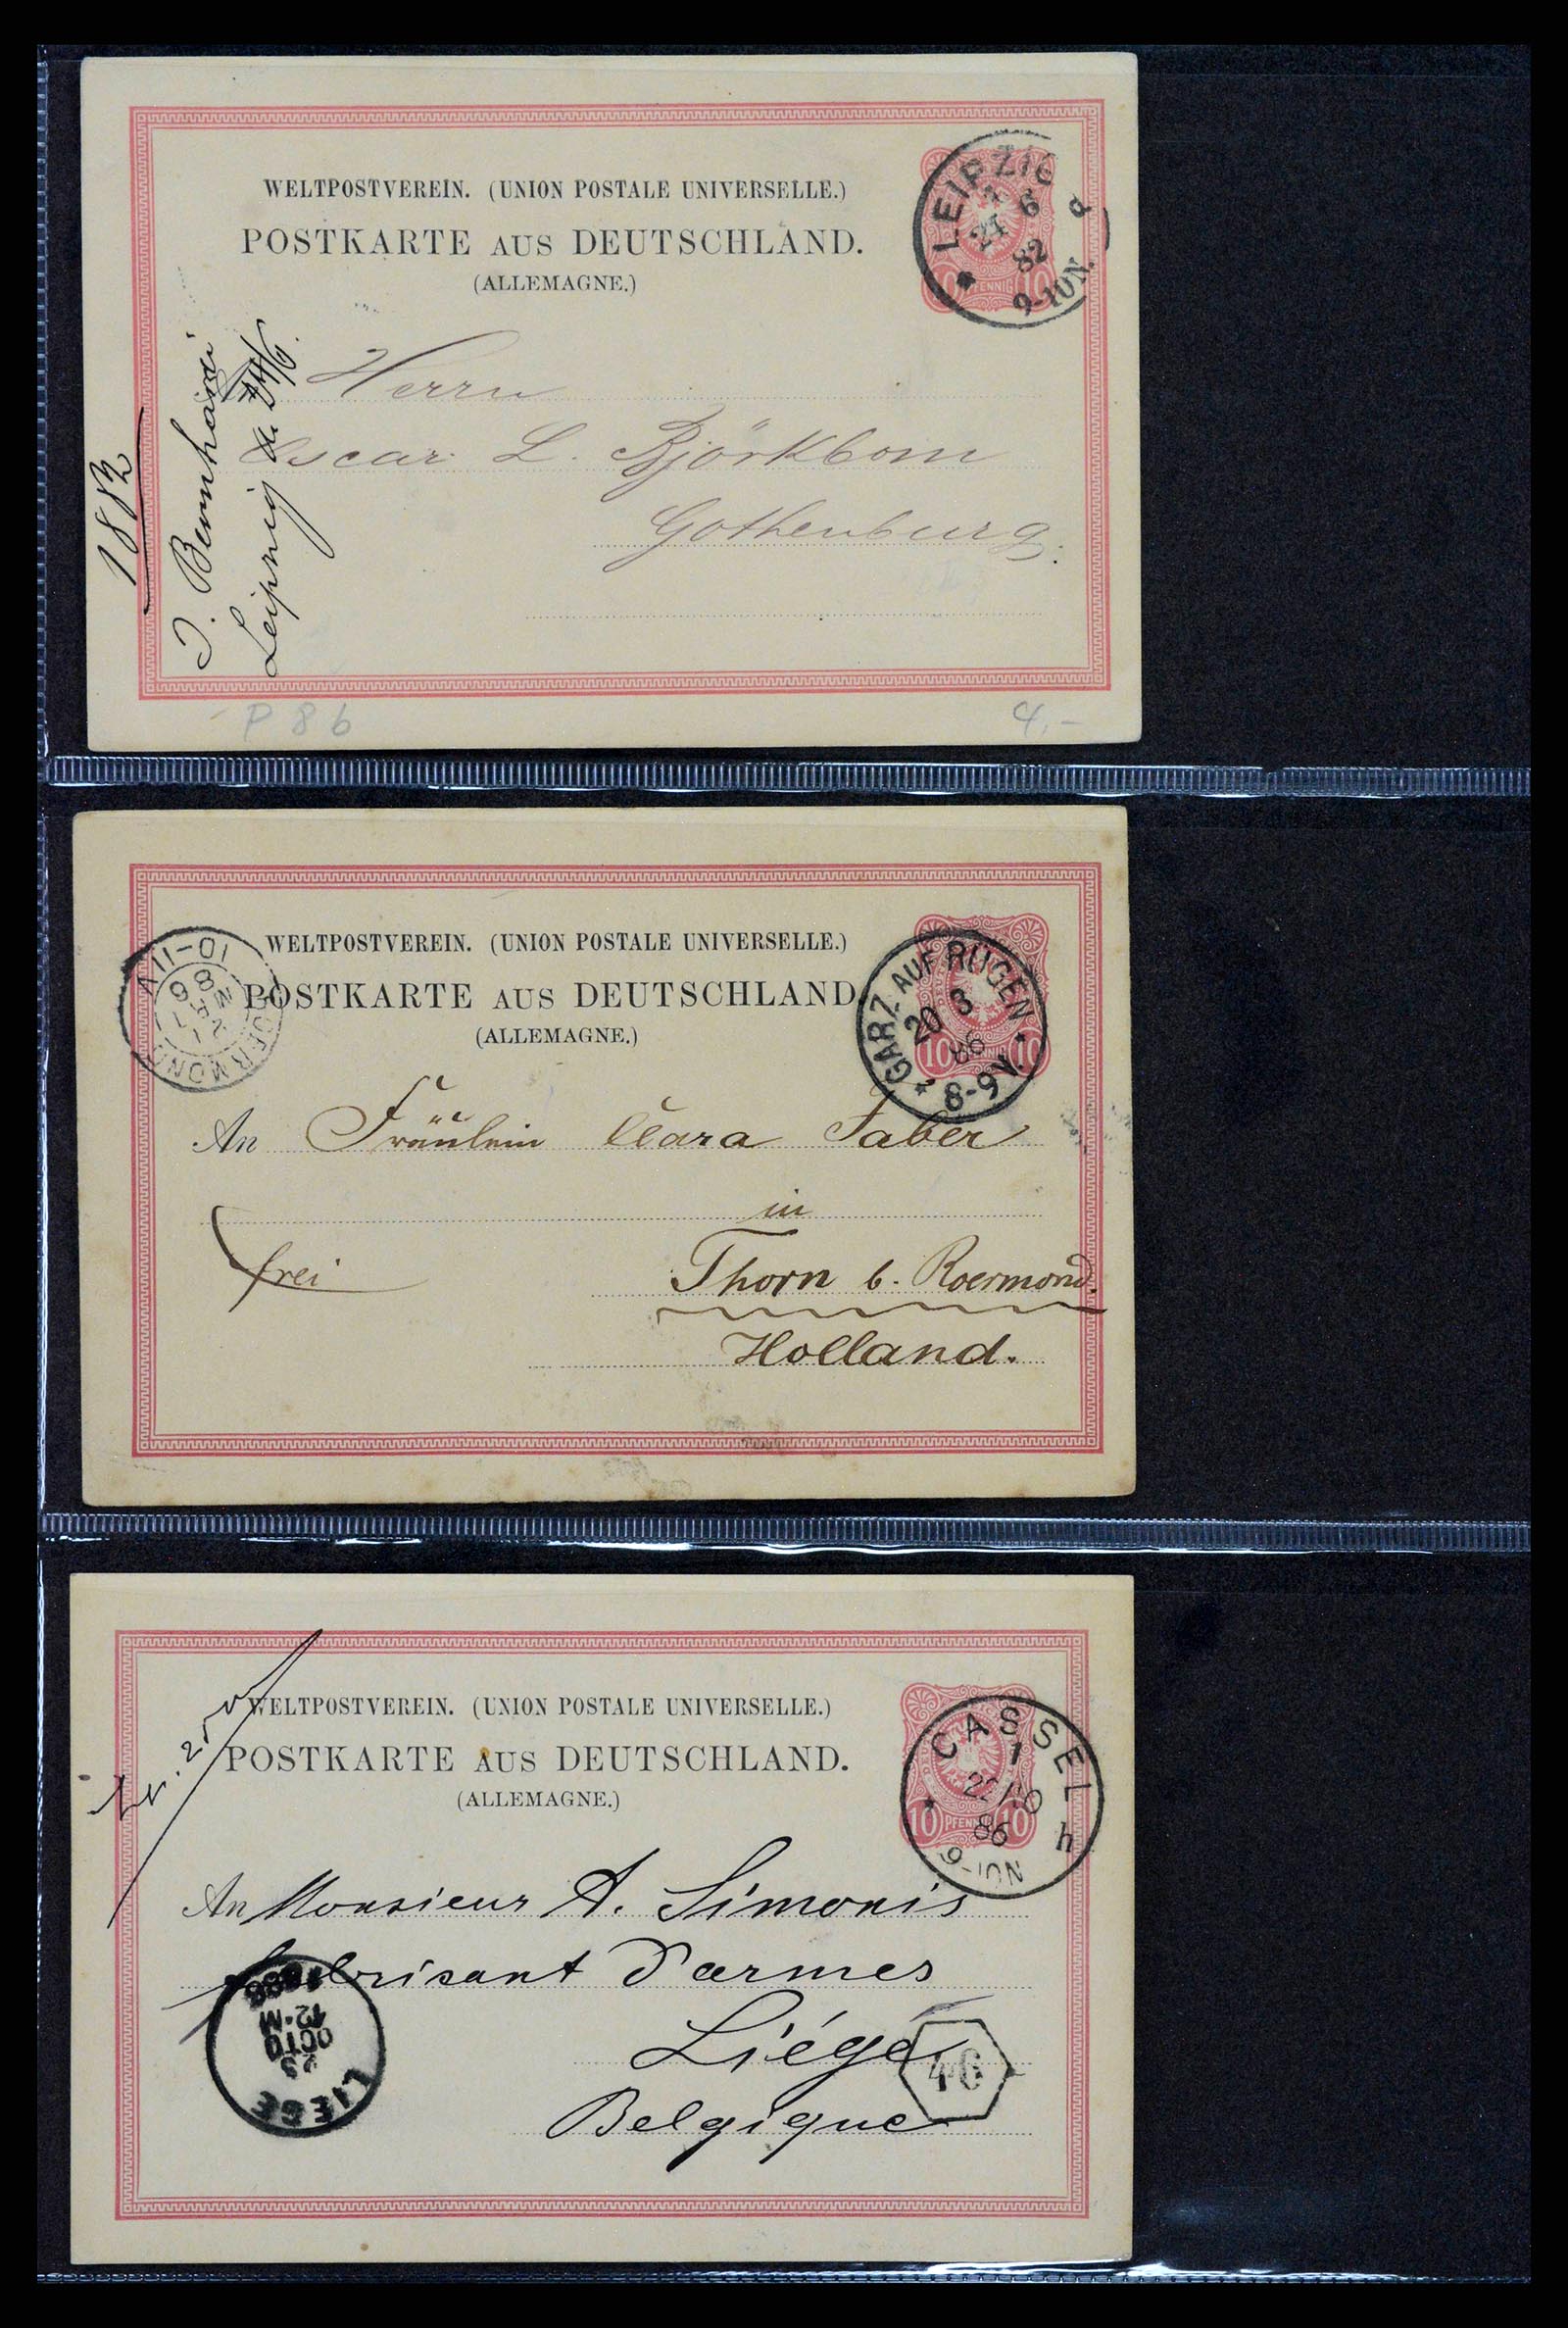 WELTPOSTVEREIN. (UNION POSTALE UNIVERSELLE.)
POSTKARTE AUS DEUTSCHLAND.
(ALLEMAGNE.)
LEIPZIG
6
82
PFENNIG 10
Herrn
Oscar L. Björkbom
Gothenburg.
1882
J. Bernhardi
Leipzig
P 8 b
4.-
WELTPOSTVEREIN. (UNION POSTALE UNIVERSELLE.)
POSTKARTE AUS DEUTSCHLAND
(ALLEMAGNE.)
10-11V
86
ROERMOND
GARZ AUF RÜGEN
20 3
86
8-9V.
10 10
An Fräulein Clara Faber
in
frei
Thorn b. Roermond.
Holland.
WELTPOSTVEREIN. (UNION POSTALE UNIVERSELLE.)
POSTKARTE AUS DEUTSCHLAND.
(ALLEMAGNE.)
CASSEL
1
22/10
86
9-10N
h
10 PFENNIG 10
An Monsieur A. Simonis
fabrisant d'armes
Liége
Belgique
46
LIEGE
23
OCTO
12-M
1886